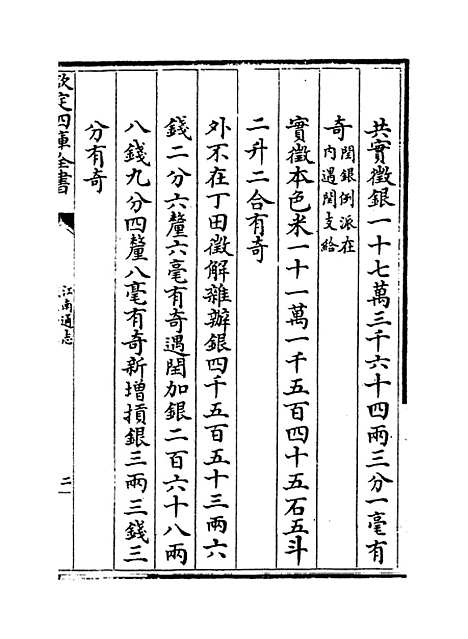 共實徵銀一十七萬三千六十四兩三分一毫有
奇閏銀例派在
內遇閏支給
實徵本色米一十一萬一千五百四十五石五斗
二升二合有奇
外不在丁田徵解雜辦銀四千五百五十三兩六
錢二分六釐六毫有奇遇閏加銀二百六十八兩
八錢九分四釐八毫有奇新增摃銀三兩三錢三
分有奇
欽定四庫全書
江南通志
二